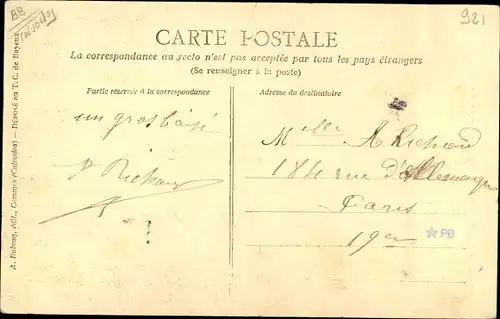 BB
921
CARTE POSTALE
La correspondance au recto n'est pas acceptée par tous les pays étrangers
(Se renseigner à la poste)
Partie réservée à la correspondance
Adresse du destinataire
un gros baisé
P Richard
!
Melle A Richard
184 rue d'Allemagne
Paris
19er
*PB
A. Dubosq, édit., Comines (Calvados) — Déposé au T. C. de Bayeux